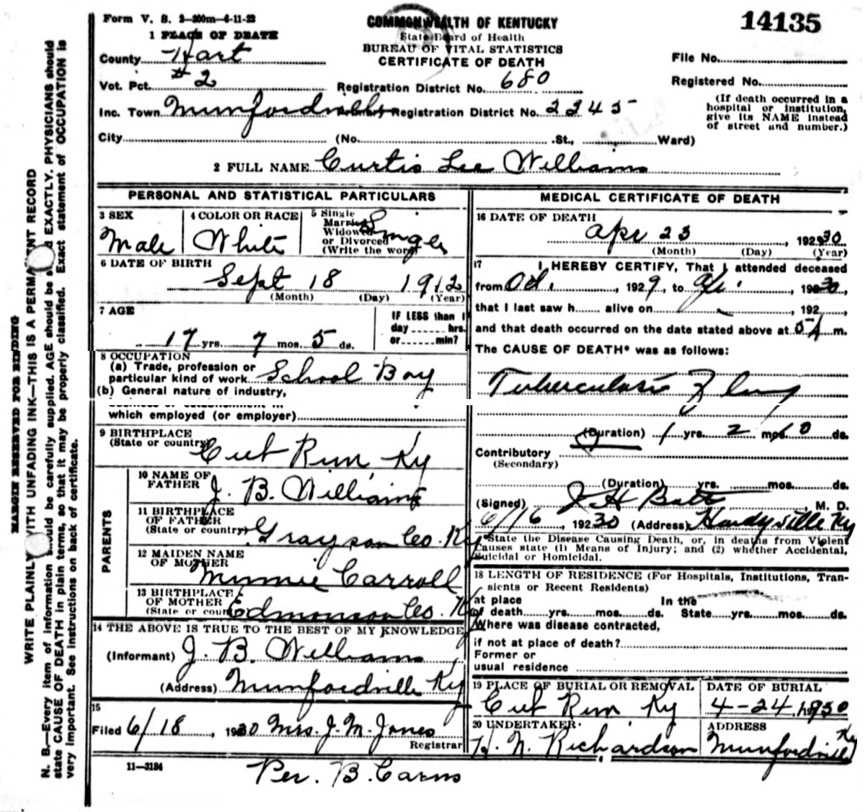 Form V. S. 3-200m-4-11-23
COMMONWEALTH OF KENTUCKY
14135
1 PLACE OF DEATH
State Board of Health
BUREAU OF VITAL STATISTICS
CERTIFICATE OF DEATH
County Hart
File No.
Vot. Pct. #2
Registration District No. 680
Registered No.
Inc. Town Munfordville
Registration District No. 2245
(If death occurred in a hospital or institution, give its NAME instead of street and number.)
City (No. St., Ward)
2 FULL NAME Curtis Lee Williams
PERSONAL AND STATISTICAL PARTICULARS
3 SEX Male
4 COLOR OR RACE White
5 Single Married Widowed or Divorced (Write the word) Single
6 DATE OF BIRTH Sept 18 1912
(Month) (Day) (Year)
7 AGE 17 yrs. 7 mos. 5 ds.
IF LESS than 1 day hrs. or min?
8 OCCUPATION
(a) Trade, profession or particular kind of work School Boy
(b) General nature of industry,
which employed (or employer)
9 BIRTHPLACE (State or country) Cub Run Ky
PARENTS
10 NAME OF FATHER J. B. Williams
11 BIRTHPLACE OF FATHER (State or country) Grayson Co. Ky
12 MAIDEN NAME OF MOTHER Minnie Carroll
13 BIRTHPLACE OF MOTHER (State or country) Edmonson Co. Ky
14 THE ABOVE IS TRUE TO THE BEST OF MY KNOWLEDGE
(Informant) J. B. Williams
(Address) Munfordville Ky
15
Filed 6/18 1930 Mrs. J. M. Jones
Registrar
11-3184
Per. B. Carns
MEDICAL CERTIFICATE OF DEATH
16 DATE OF DEATH Apr 23, 1930
(Month) (Day) (Year)
17 I HEREBY CERTIFY, That I attended deceased
from Oct., 1929, to Apr., 1930
that I last saw h alive on , 192
and that death occurred on the date stated above at 5 A m.
The CAUSE OF DEATH* was as follows:
Tuberculosis of lung
(Duration) 1 yrs. 2 mos. 10 ds.
Contributory
(Secondary)
(Duration) yrs. mos. ds.
(Signed) J H Batt M. D.
6/16, 1930 (Address) Hardyville Ky
*State the Disease Causing Death, or, in deaths from Violent Causes state (1) Means of Injury; and (2) whether Accidental, Suicidal or Homicidal.
18 LENGTH OF RESIDENCE (For Hospitals, Institutions, Transients or Recent Residents)
at place In the
of death yrs. mos. ds. State yrs. mos. ds.
Where was disease contracted,
if not at place of death?
Former or
usual residence
19 PLACE OF BURIAL OR REMOVAL Cub Run Ky
DATE OF BURIAL 4-24, 1930
20 UNDERTAKER H. N. Richardson
ADDRESS Munfordville Ky
MARGIN RESERVED FOR BINDING
WRITE PLAINLY WITH UNFADING INK—THIS IS A PERMANENT RECORD
N. B.—Every item of information should be carefully supplied. AGE should be stated EXACTLY. PHYSICIANS should
state CAUSE OF DEATH in plain terms, so that it may be properly classified. Exact statement of OCCUPATION is
very important. See instructions on back of certificate.